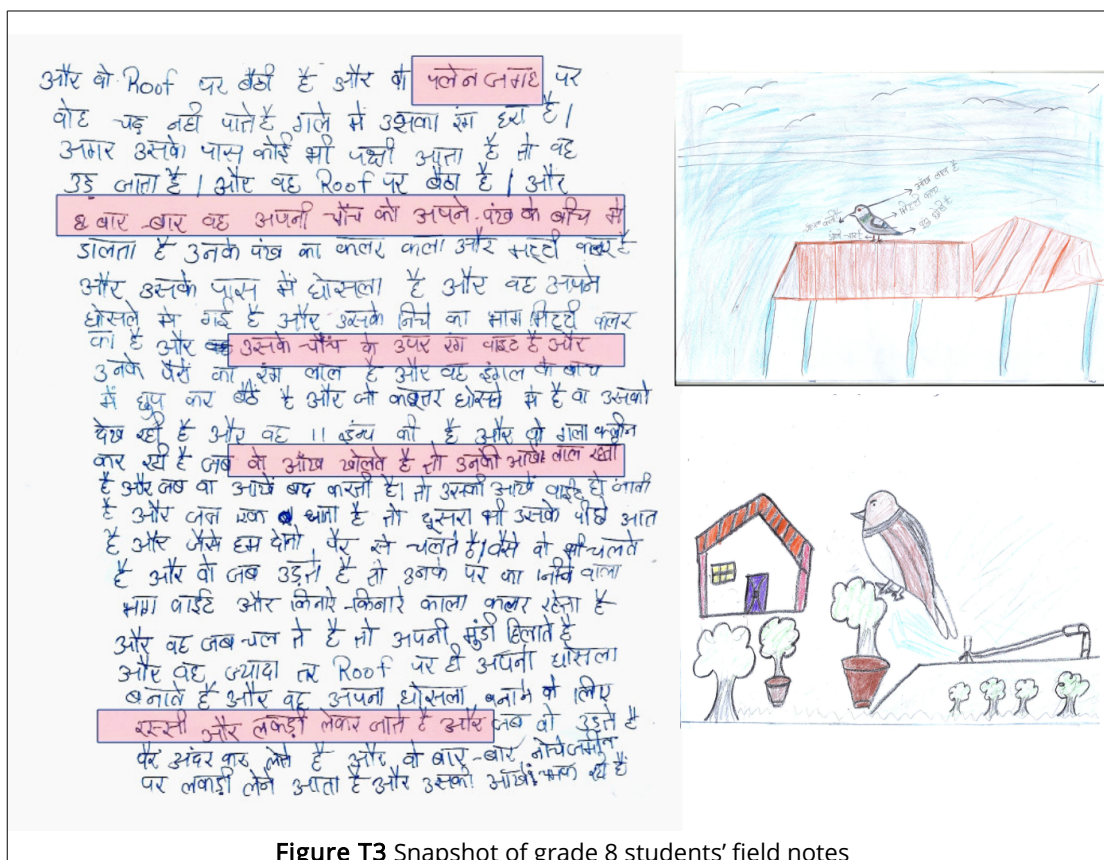 और वो Roof पर बैठी है और वो पलेन जगह पर
वोह चढ़ नही पाते है गले में उसका रंग हरा है।
अगर उसके पास कोई भी पक्षी आता है तो वह
उड़ जाता है। और वह Roof पर बैठा है। और
& बार-बार वह अपनी चोंच को अपने-पंख के बीच मे
डालता है उनके पंख का कलर कला और मट्टी कलर है
और उसके पास में घोसला है और वह अपमे
घोसले मे गई है और उसके निचे का भाग मिट्टी कलर
का है और उसके चोंच के उपर रंग वाइट है और
उनके पैरो का रंग लाल है और वह इंगल के बीच
में छुप कर बैठे है और जो कबुतर घोसले मे है वा उसको
देख रही है और वह 11 इन्च की है और वो गला क्लीन
कर रही है जब वो आँख खोलते है तो उनकी आखे लाल रहती
है और जब वा आखे बद करती है। तो उसकी आखें वाईट हो जाती
है और जब एक आता है तो दुसरा भी उसके पीछे आत
है और जैसे हम दोनो पैर से चलते है। वैसे वो भी चलते
है और वो जब उड़ते है तो उनके पर का निचे वाला
भाग वाईट और किनारे-किनारे काला कलर रहता है
और वह जब चल ते है तो अपनी मुंडी हिलाते है
और वह ज्यादा तर Roof पर ही अपना घोसला
बनाते है और वह अपना घोसला बनाने के लिए
रस्सी और लकड़ी लेकर जाते है और जब वो उड़ते है
पैर अंदर कर लेते है और वो बार-बार नीचे जमीन
पर लकड़ी लेने आता है और उसकी आँखे चमक रही है
आँख लाल है
Figure T3 Snapshot of grade 8 students' field notes